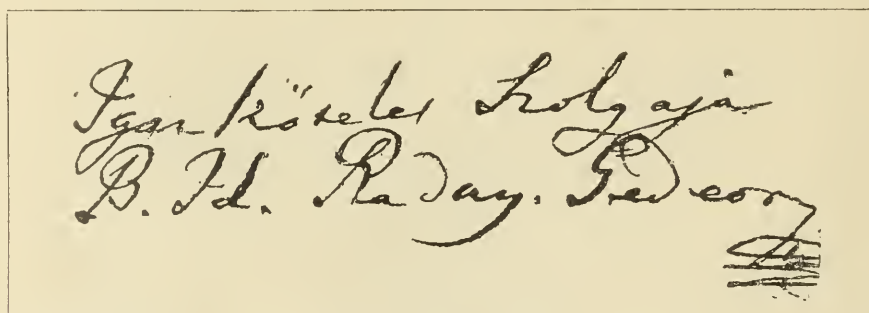 Igaz köteles szolgája
B. Id. Raday. Gedeon